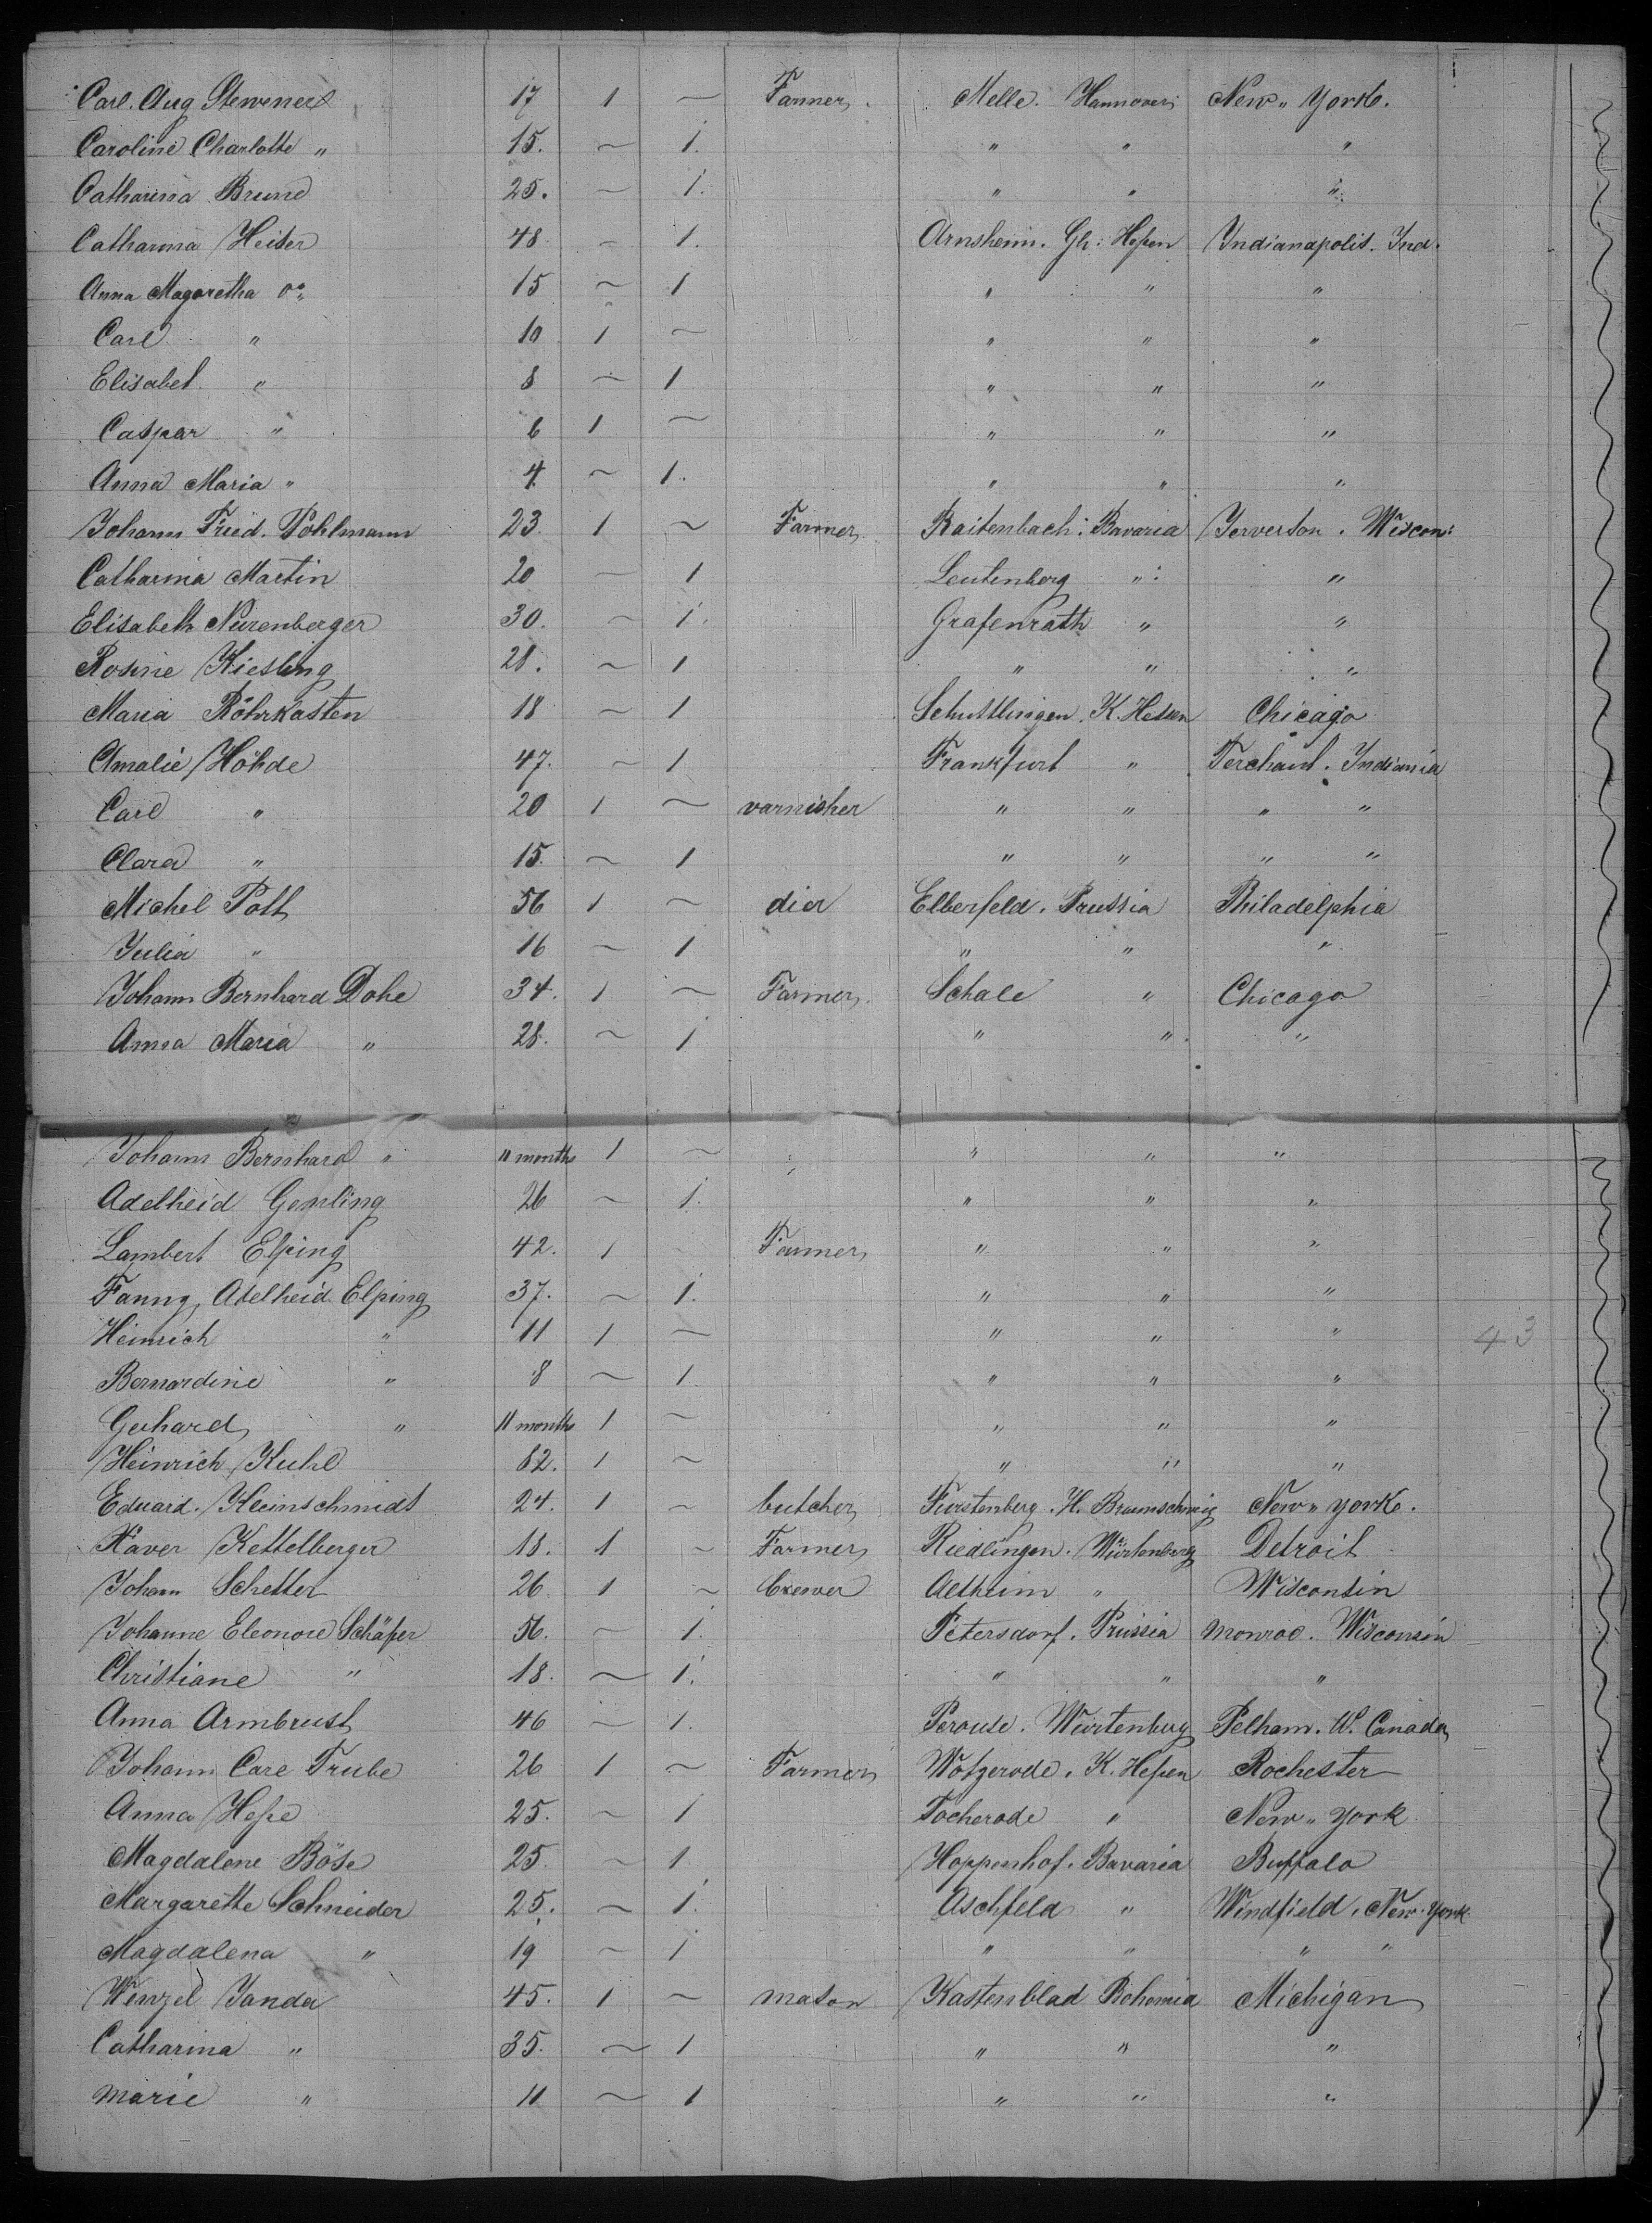 Carl. Aug Stewener 17 1 ~ Farmer. Melle. Hannover New „ York.
Caroline Charlotte „ 15. ~ 1. „ „ „
Catharina Brune 25. ~ 1. „ „ „
Catharina Heiser 48 ~ 1. Arnsheim. Gh: Heßen Indianapolis. Ind.
Anna Magaretha Do 15 ~ 1 „ „ „
Carl „ 10 1 ~ „ „ „
Elisabet „ 8 ~ 1 „ „ „
Caspar „ 6 1 ~ „ „ „
Anna Maria „ 4 ~ 1. „ „ „
Johann Fried. Pöhlmann 23. 1 ~ Farmer. Raitenbach: Bavaria Jerverson. Wiscon:
Catharina Martin 20 ~ 1 Leutenberg „: „
Elisabeth Nürenberger 30. ~ 1. Grafenrath „ „
Rosine Kiesling 28. ~ 1 „ „ „
Maria Röhrkasten 18 ~ 1 Schuttlingen. K. Hessen Chicago
Amalie Höhde 47. ~ 1 Frankfurt „ Terchaut. Indiania
Carl „ 20 1 ~ varnisher „ „ „ „
Clara „ 15. ~ 1 „ „ „ „
Michel Pott 56 1 ~ dier Elberfeld. Prussia Philadelphia
Julia „ 16 ~ 1 „ „ „
Johann Bernhard Dohe 34. 1 ~ Farmer. Schale „ Chicago
Anna Maria „ 28. ~ 1 „ „ „
Johann Bernhard „ 11 months 1 ~ „ „ „
Adelheid Gemling 26 ~ 1. „ „ „
Lambert Elping 42. 1 ~ Farmer „ „ „
Fanny, Adelheid Elping 37. ~ 1. „ „ „
Heinrich „ 11 1 ~ „ „ „ 43
Bernardine „ 8 ~ 1. „ „ „
Gerhard „ 11 months 1 ~ „ „ „
Heinrich Kuhl 82. 1 ~ „ „ „
Eduard. Kleinschmidt 24. 1 ~ butcher Furstenberg. H. Braunschweig New „ york.
Xaver Kettelberger 18. 1 ~ Farmer Riedlingen. Würtenberg Detroit
Johann Schetter 26. 1 ~ brewer Aetheim „ Wisconsin
Johanne Eleonore Schäfer 56. ~ 1. Petersdorf. Prussia Monroe. Wisconsin
Christiane „ 18. ~ 1. „ „ „
Anna Armbrust 46 ~ 1. Perouse. Würtenberg Pelham. W. Canada
Johann Carl Trube 26 1 ~ Farmer Wofgerode. K. Heßen Rochester
Anna Heße 25. ~ 1 Tocherode „ New „ york
Magdalene Böse 25. ~ 1 Hoppenhof. Bavaria Buffalo
Margarethe Schneider 25. ~ 1. Aschfeld „ Windfield. New. york
Magdalena „ 19 ~ 1 „ „ „ „
Wenzel Janda 45. 1 ~ mason Kastenblad Bohemia Michigan
Catharina „ 35. ~ 1 „ „ „
Marie „ 11 ~ 1 „ „ „